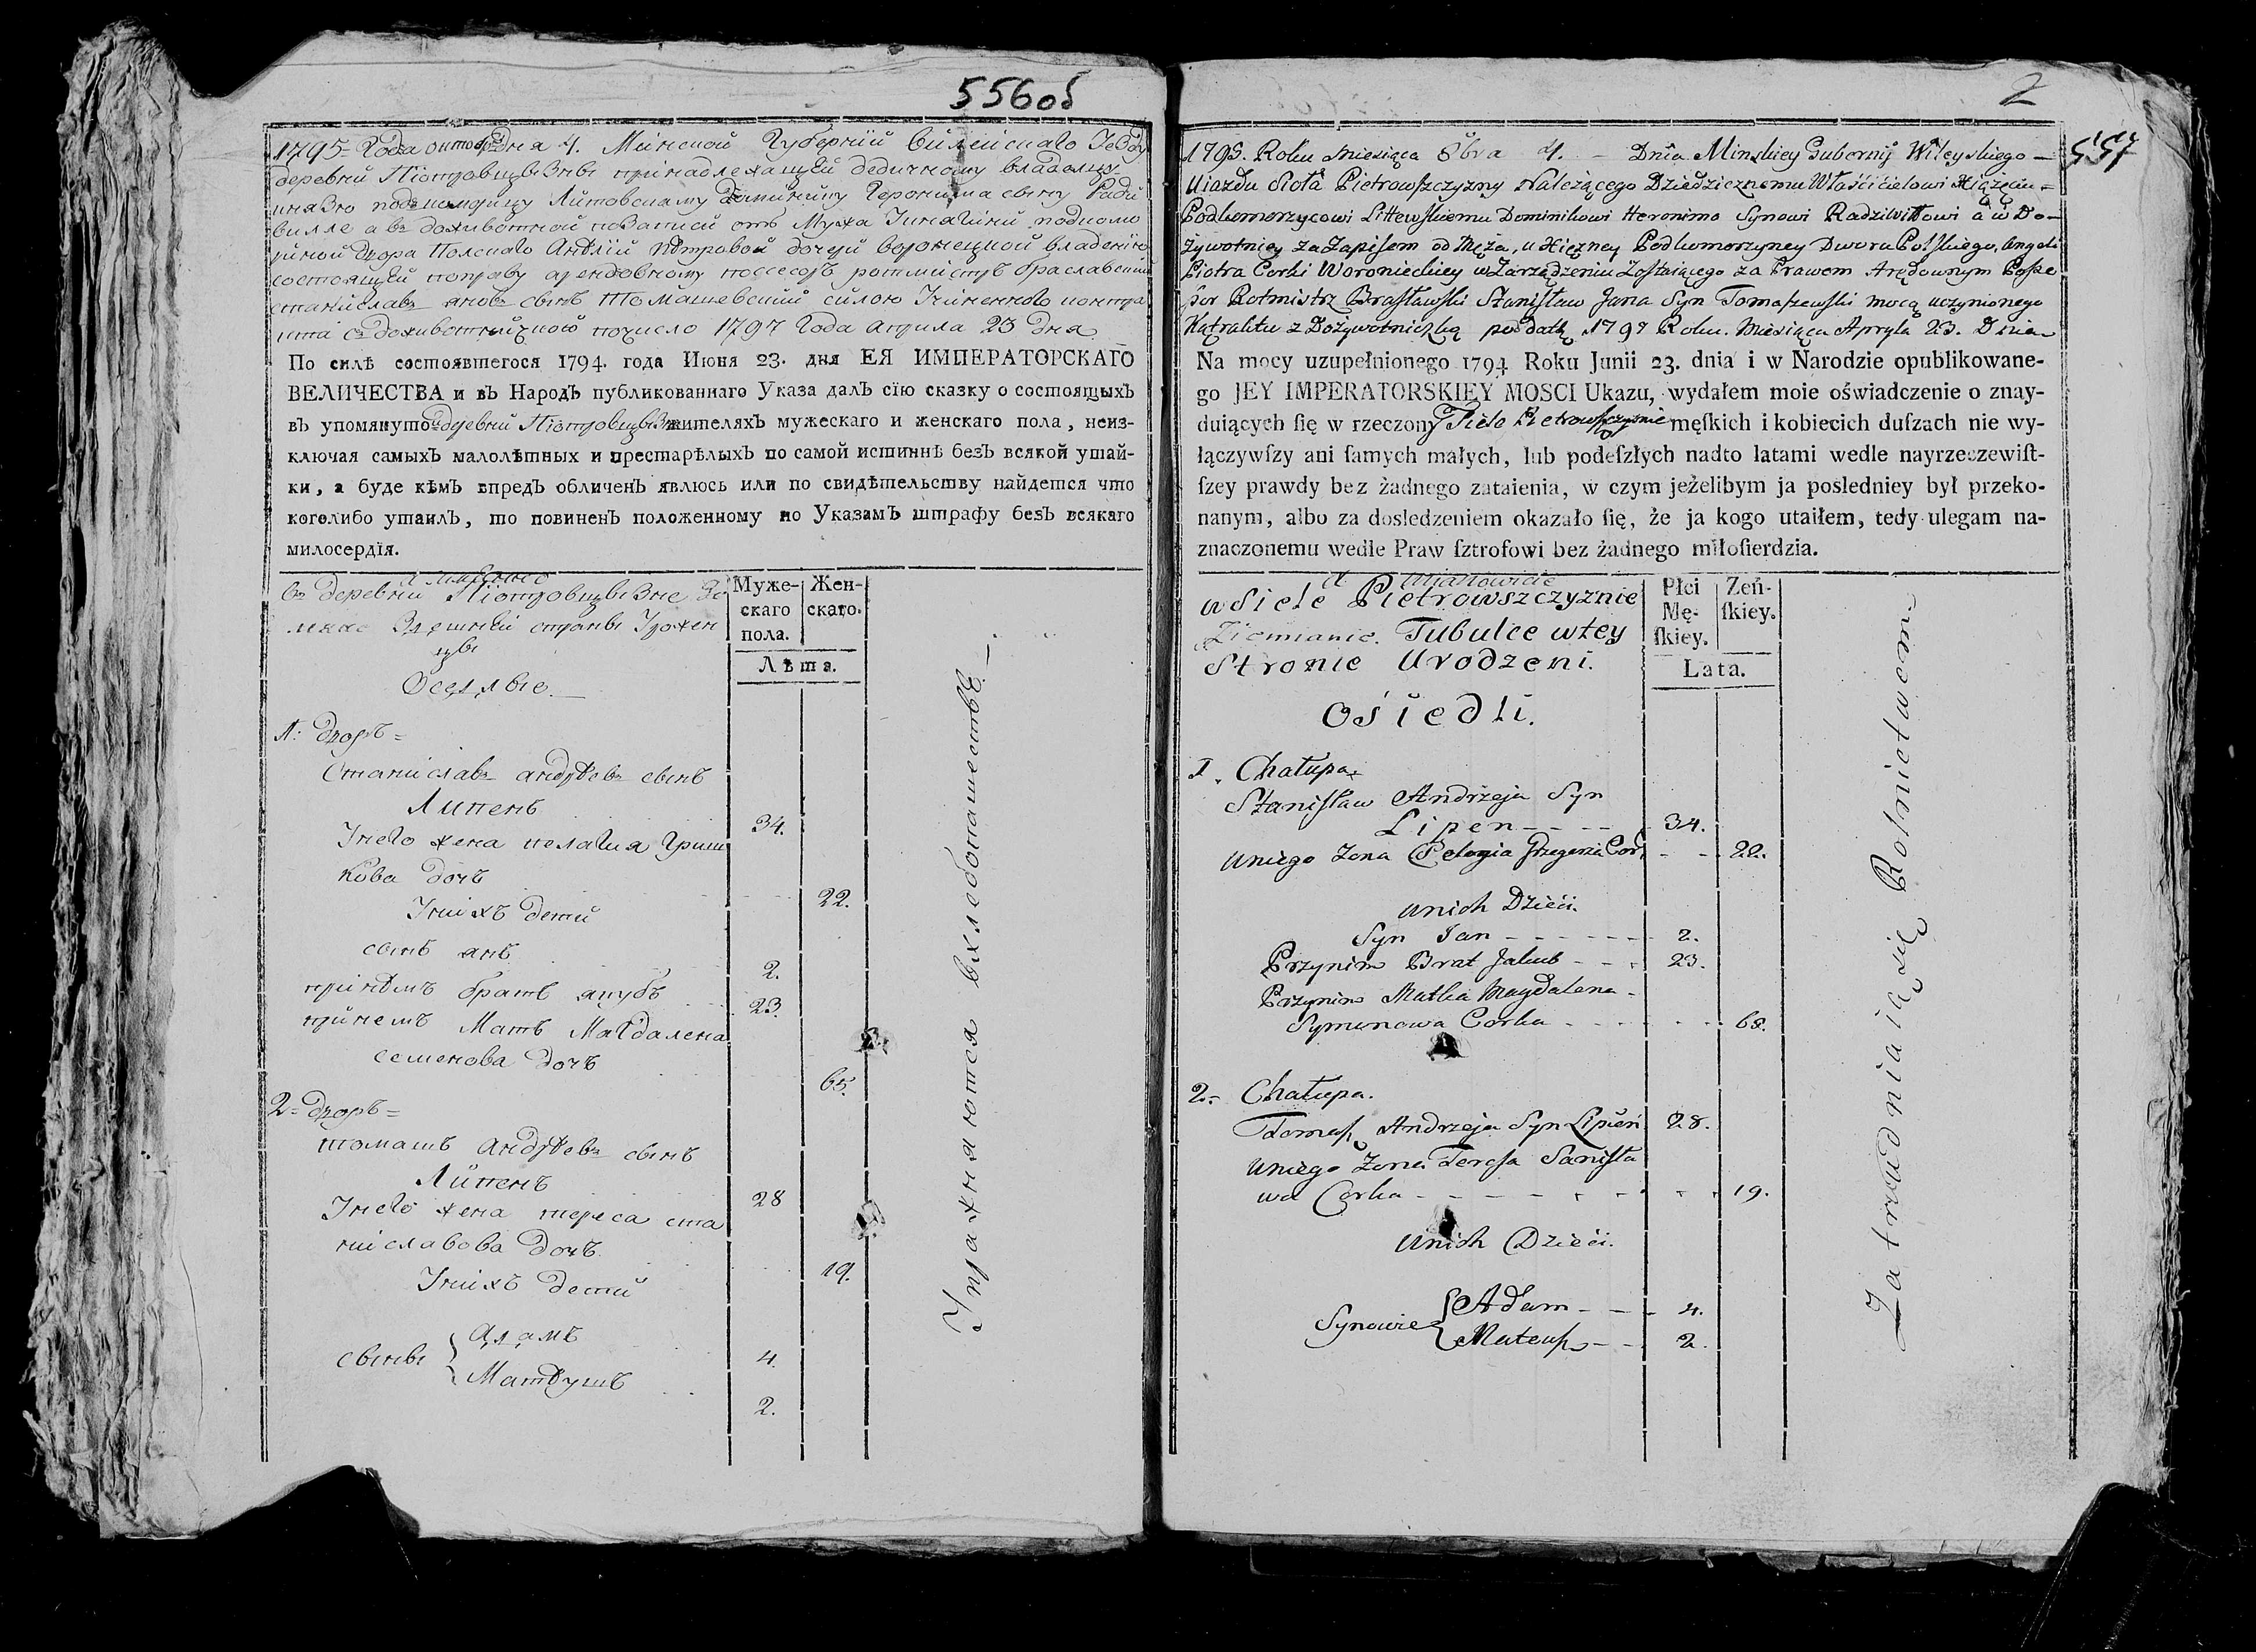 556об
1795 Года октобр Дня 4. Минской Губернии Вилейского Уезду
деревни Піотровщизны принадлежащей дедичному владельцу
князю подкоморицу Литовскому Доминику Геронима сыну Ради
вилле а въ доживотной по записи отъ Мужа Княгини подкомо
риной Двора Полского Петровой дочери Воронецкой владению
состоящей по праву арендовному поссесоръ ротмистръ браславский
станиславъ яновъ сынъ Томашевский силою контра
кта съ по число 1797 Года априля 23 дня
По силѣ состоявшегося 1794. года Июня 23. дня ЕЯ ИМПЕРАТОРСКАГО
ВЕЛИЧЕСТВА и въ Народъ публикованнаго Указа далъ сїю сказку о состоящыхъ
въ упомянуто деревни Піотровщизне жителяхъ мужескаго и женскаго пола, неиз-
ключая самыхъ малолѣтныхъ и престарѣлыхъ по самой истиннѣ безъ всякой утай-
ки, а буде кѣмъ впредъ обличенъ явлюсь или по свидѣтельству найдется что
коголибо утаилъ, то повиненъ положенному по Указамъ штрафу безъ всякаго
милосердїя.
а имянно
въ деревни Піотровщизне
здешней страны Урожен
цы
Оседлые.
Муже-
скаго
пола.
Жен-
скаго.
Лѣта.
1: дворъ =
Станиславъ андрѣевъ сынъ
Липень 34.
Унего жена пелагия Гриш
кова дочь 22.
Унихъ дети
сынъ янъ 2.
принемъ братъ якубъ 23.
принемъ Мать Магдалена
семенова дочь 65.
2 = дворъ =
томашъ андрѣевъ сынъ
Липень 28
Унего жена тереса ста
ниславова дочь 19.
Унихъ дети
сыны { адамъ 4.
Матѣушъ 2.
Упражняются вхлебопашествѣ.
2
557
1795. Roku Miesiąca 8bra 4. — Dnia Minskiey Gubernij Wileyskiego —
Ujazdu Sioła Pietrowszczyzny Należącego Dziedzicznemu Właścicielowi Xiążęciu =
Podkomorzycowi Littewskiemu Dominikowi Heronima Synowi Radziwiłłowi a w Do-
żywotniey za Zapisem od Męża, u Xiężney Podkomorzyney Dworu Polskiego, Angeli
Piotra Corki Woronieckiey w Zarządzeniu Zostaiącego za Prawem Arędownym Posse
sor Rotmistrz Brasławski Stanisław Jana Syn Tomaszewski mocą uczynionego
Kątraktu z Dożywotniczką pod datą 1797 Roku. Miesiąca Apryla 23. Dnia
Na mocy uzupełnionego 1794 Roku Junii 23. dnia i w Narodzie opublikowane-
go JEY IMPERATORSKIEY MOSCI Ukazu, wydałem moie oświadczenie o znay-
duiących ſię w rzeczony Siele Pietrowszczyznie męſkich i kobiecich duſzach nie wy-
łączywſzy ani ſamych małych, lub podeſzłych nadto latami wedle nayrzeczewiſt-
ſzey prawdy bez żadnego zataienia, w czym jeżelibym ja posledniey był przeko-
nanym, albo za dosledzeniem okazało ſię, że ja kogo utaiłem, tedy ulegam na-
znaczonemu wedle Praw ſztrofowi bez żadnego miłoſierdzia.
a Mianowicie
w Siele Pietrowszczyznie
Ziemianie. Tubulce wtey
Stronie Urodzeni.
Osiedli.
Płci
Mę-
ſkiey.
Żeń-
ſkiey.
Lata.
1. Chałupa
Stanisław Andrzeja Syn
Lipen - - - - 34.
Uniego Żona Pelagia Grzegorza Cor. - - 22.
Unich Dzieci.
Syn Jan - - - - - - 2.
Przynim Brat Jakub - - - 23.
Przynim Matka Magdalena -
Symonowa Corka - - - - - - 68.
2. - Chałupa.
Tomasz Andrzeja Syn Lipień 28.
Uniego Żona Teresa Stanisła
wa Corka - - - - - - - - 19.
Unich Dzieci.
Synowie { Adam - - - 4.
Mateusz - - 2.
Zatrudniaią się Rolnictwem